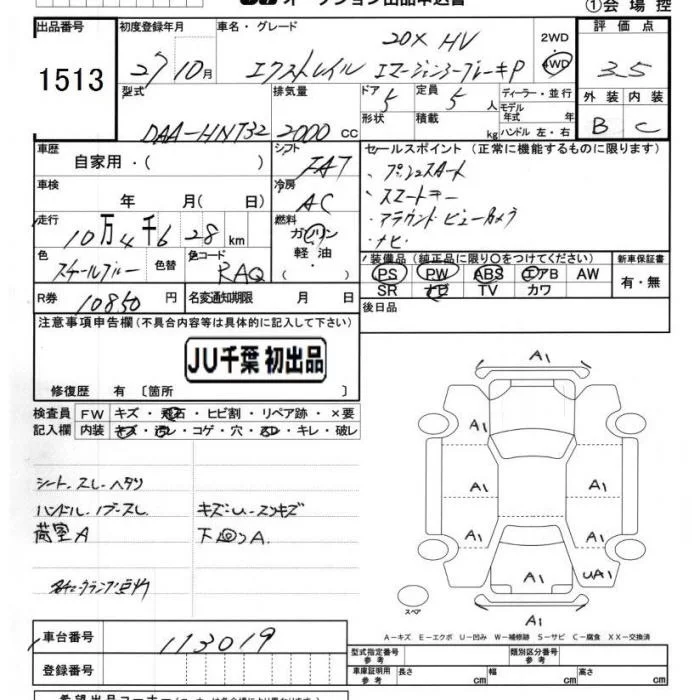 ①会場控
出品番号
1513
初度登録年月
27年10月
車名・グレード
20X HV
エクストレイル エマージェンシーブレーキP
2WD
4WD
評価点
3.5
外装 内装
B C
型式
DAA-HNT32
排気量
2000 cc
ドア 5
形状
定員 5 人
積載 kg
ディーラー・並行
モデル年式 年
ハンドル 左・右
車歴
自家用・( )
シフト
FAT
車検
年 月( 日)
冷房
AC
走行
10万4千6 28 km
燃料
ガソリン
軽油
色
スチールブルー
色替
色コード
RAQ
R券
10850 円
名変通知期限 月 日
セールスポイント(正常に機能するものに限ります)
・プッシュスタート
・スマートキー
・アラウンドビューカメラ
・ナビ
装備品(純正品に限り○をつけてください)
PS PW ABS エアB AW
SR ナビ TV カワ
新車保証書
有・無
後日品
注意事項申告欄(不具合内容等は具体的に記入して下さい)
JU千葉 初出品
修復歴 有〔箇所 〕
検査員 FW キズ・飛石・ヒビ割・リペア跡・×要
記入欄 内装 キズ・汚レ・コゲ・穴・スレ・キレ・破レ
シート、スレ、ヘタリ
ハンドル、ノブスレ
荷室A
下回りA
A1
A1
A1
A1
A1
A1
A1
A1
UA1
A1
スペア
A-キズ E-エクボ U-凹み W-補修跡 S-サビ C-腐食 XX-交換済
車台番号
113019
登録番号
型式指定番号 参考
類別区分番号 参考
車庫証明用 参考
長さ cm 幅 cm 高さ cm